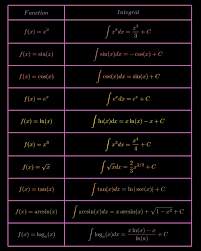 Function Integral
f(x) = x² ∫ x²dx = x³/3 + C
f(x) = sin(x) ∫ sin(x)dx = −cos(x) + C
f(x) = cos(x) ∫ cos(x)dx = sin(x) + C
f(x) = eˣ ∫ eˣdx = eˣ + C
f(x) = ln(x) ∫ ln(x)dx = x ln(x) − x + C
f(x) = x³ ∫ x³dx = x⁴/4 + C
f(x) = √x ∫ √x dx = 2/3 x^(3/2) + C
f(x) = tan(x) ∫ tan(x)dx = ln|sec(x)| + C
f(x) = arcsin(x) ∫ arcsin(x)dx = x arcsin(x) + √(1 − x²) + C